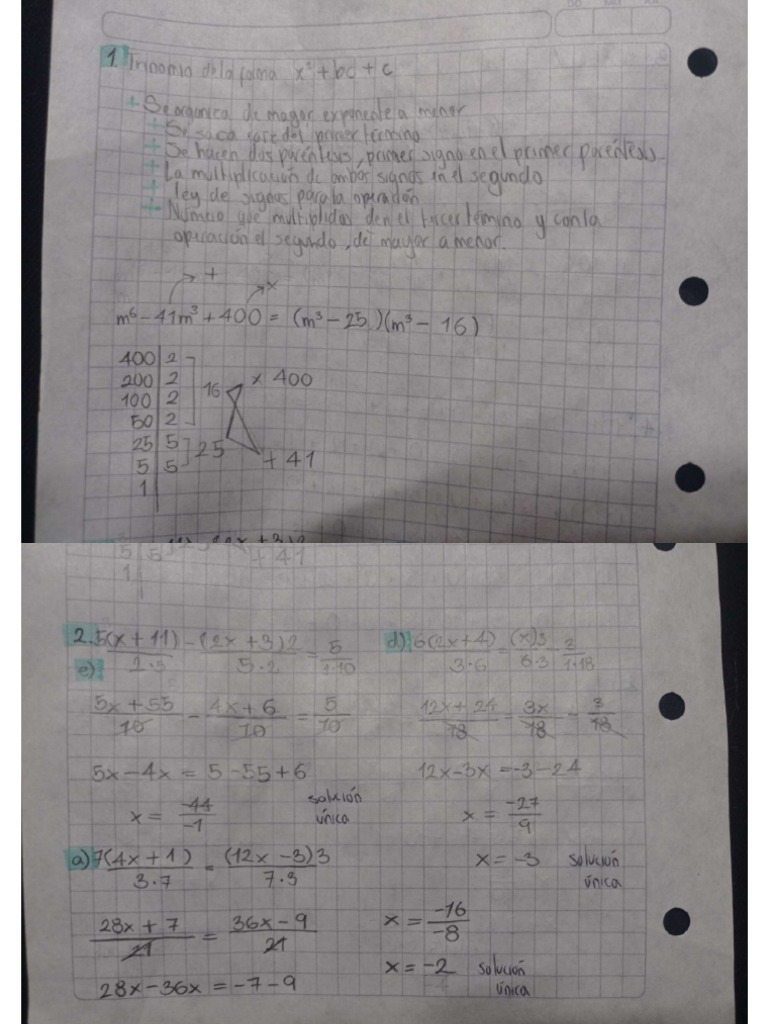 1. Trinomio de la forma x² + bc + c
+ Se organica de mayor exponente a menor
+ Se saca raíz del primer término
+ Se hacen dos paréntesis, primer signo en el primer paréntesis
+ La multiplicación de ambos signos en el segundo
+ ley de signos para la operación
+ Número que multiplidos den el tercer término y con la
operación el segundo, de mayor a menor.
+ x
m⁶ - 41m³ + 400 = (m³ - 25)(m³ - 16)
400 | 2
200 | 2 16 x 400
100 | 2
50 | 2
25 | 5 25
5 | 5 + 41
1
5 | 5 + 41
1
2. 5(x + 11)/2·5 - (2x + 3)2/5·2 = 5/1·10
e)
5x + 55/10 - 4x + 6/10 = 5/10
5x - 4x = 5 - 55 + 6
x = -44/-1 solución única
a) 7(4x + 1)/3·7 = (12x - 3)3/7·3
28x + 7/21 = 36x - 9/21
28x - 36x = -7 - 9
x = -16/-8
x = -2 solución única
d) 6(2x + 4)/3·6 = (x)3/6·3 - 3/1·18
12x + 24/18 = 3x/18 - 3/18
12x - 3x = -3 - 24
x = -27/9
x = -3 solución única